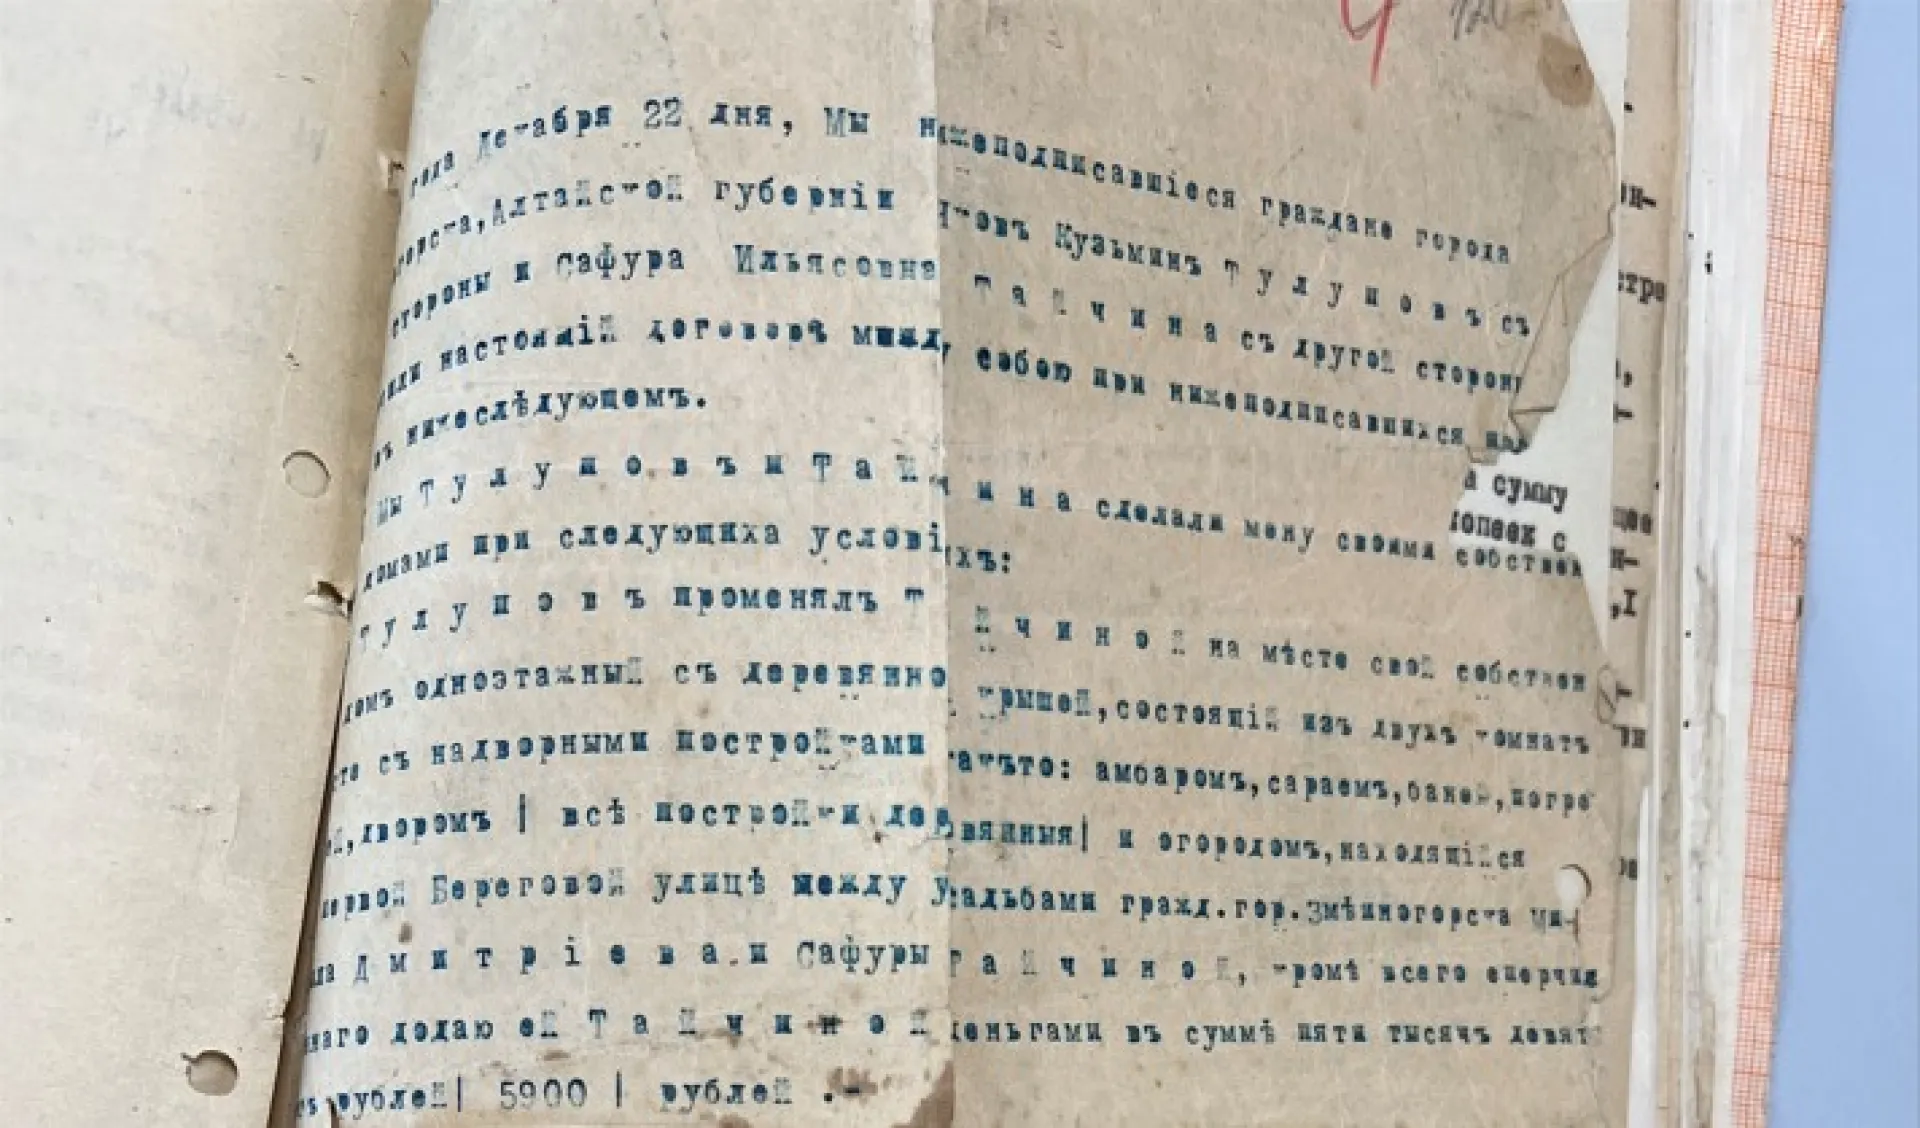 года Декабря 22 дня, Мы нижеподписавшіеся граждане города
Алтайской губерніи Яковъ Кузьминъ Т у л у п о в ъ съ
стороны и Сафура Ильясовна Т а й ч и н а съ другой стороны
настоящій договоръ межд у собою при нижеподписавшихся
въ нижеслѣдующемъ.
Мы Т у л у п о в ъ и Т а й ч и н а сделали мену своими собствен
домами при следующиха условіяхъ:
Т у л у п о в ъ променялъ Т а й ч и н о й на мѣсте свой собствен
домъ одноэтажный съ деревянной крышей,состоящій изъ двухъ комнатъ
съ надворными постройками какъто: амбаромъ,сараемъ,баней,погре
дворомъ | всѣ постройки деревянныя| и огородомъ,находящійся
первой Береговой улицѣ между усадьбами гражд.гор.Змѣиногорска
Д м и т р і е в а и Сафуры Т а й ч и н о й, кромѣ всего
додаю ей Т а й ч и н о й деньгами въ суммѣ пяти тысячъ девят
рублей| 5900 | рублей .-
а сумму
копеек с